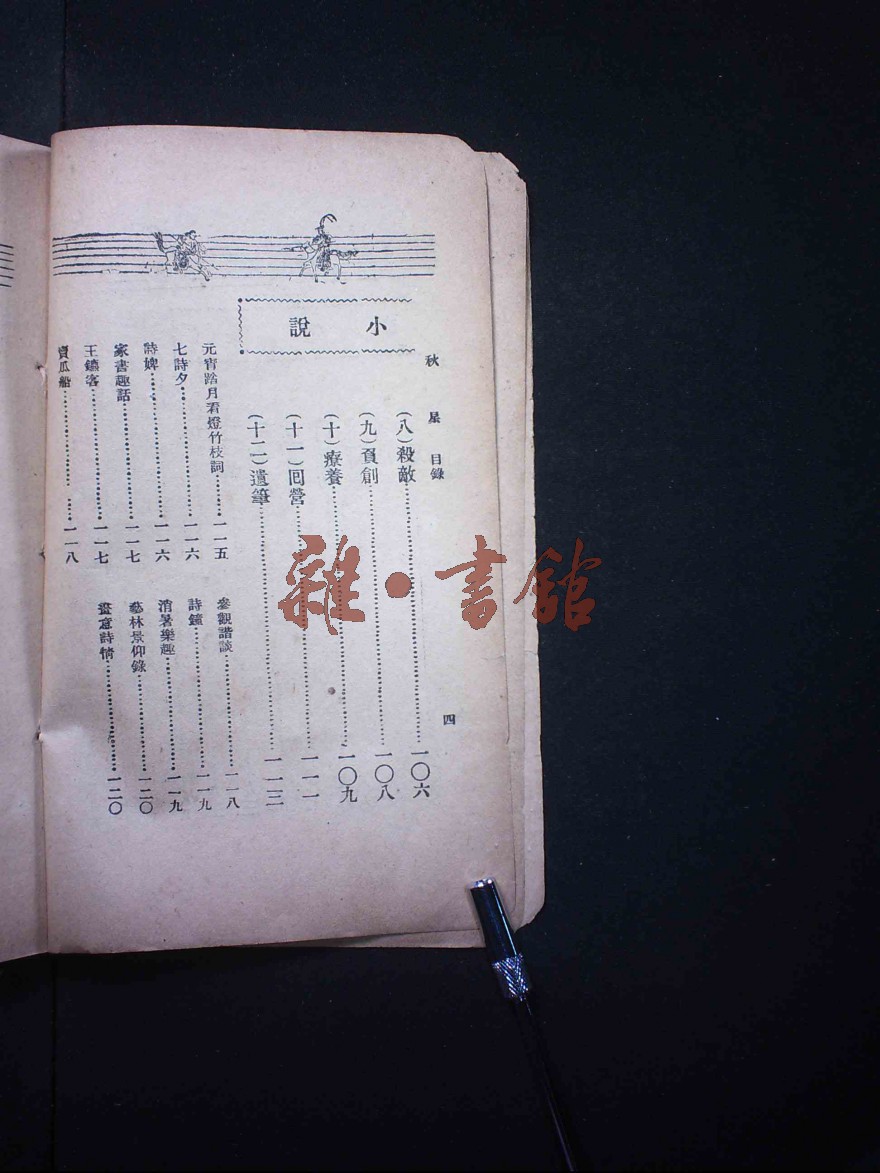 秋星 目錄 四
小說
(八)殺敵……一〇六
(九)負創……一〇八
(十)療養……一〇九
(十一)回營……一一一
(十二)遺筆……一一三
元宵踏月看燈竹枝詞……一一五
七詩夕……一一六
詩婢……一一六
家書趣話……一一七
王鑛客……一一七
賣瓜船……一一八
參觀諧談……一一八
詩鐘……一一九
消暑樂趣……一一九
藝林景仰錄……一二〇
畫意詩情……一二〇
雜·書館